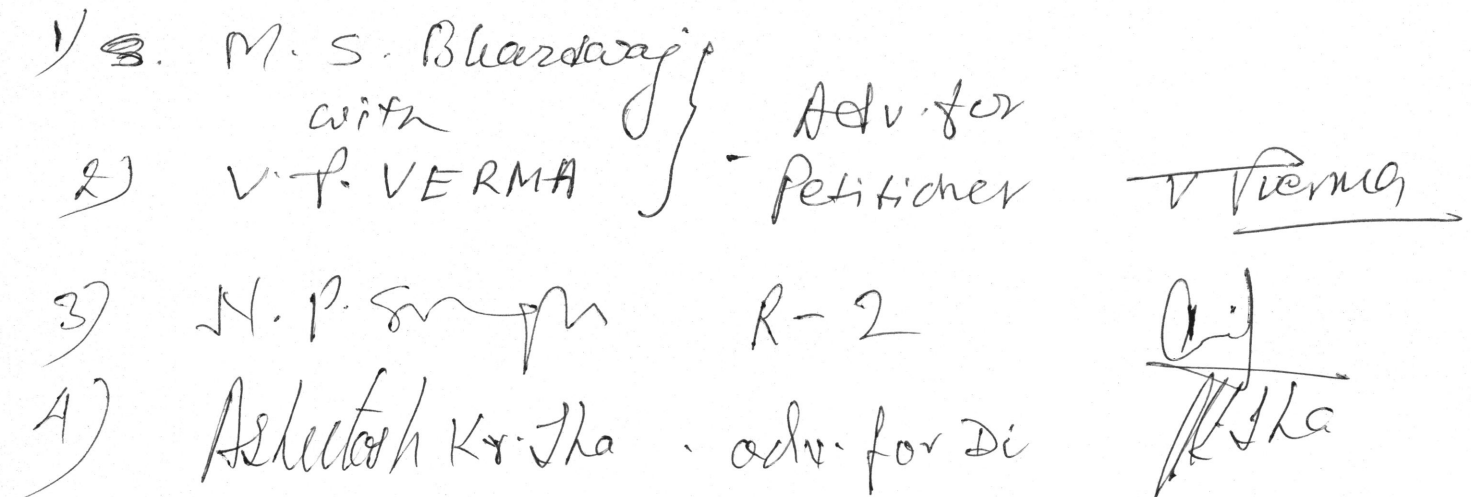 1) M. S. Bhardwaj
with
Adv. for
2) V. P. VERMA - Petitioner V Verma
3) N. P. Singh R-2
4) Ashutosh Kr. Jha . adv. for Di Jha